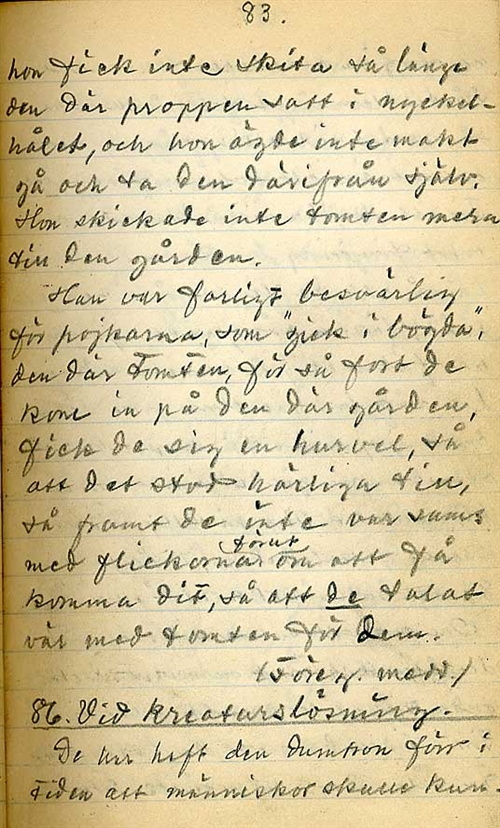 83.
hon fick inte skita så länge
den där proppen satt i nyckel-
hålet, och hon ägde inte makt
gå och ta den därifrån själv.
Hon skickade inte tomten mera
till den gården.
Han var farligt besvärlig
för pojkarna, som "gick i bögda",
den där tomten, för så fort de
kom in på den där gården,
fick de sig en hurvel, så
att det stod härliga till,
så framt de inte var sams
med flickorna förut om att få
komma dit, så att de talat
väl med tomten för dem.
(Föreg. medd.)
86. Vid kreaturslösning.
De har haft den dumtron förr i
tiden att människor skulle kun-